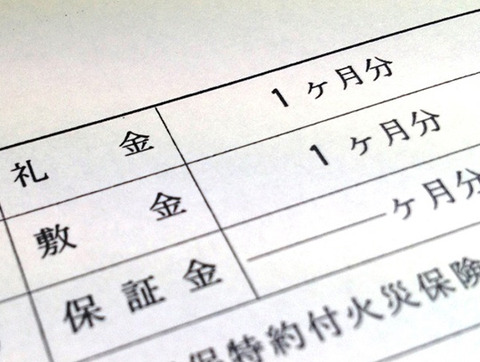 礼金 1ヶ月分
敷金 1ヶ月分
保証金 ――ヶ月分
特約付火災保険